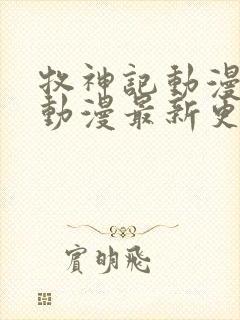 牧神記動漫
動漫最新更
賓明飛